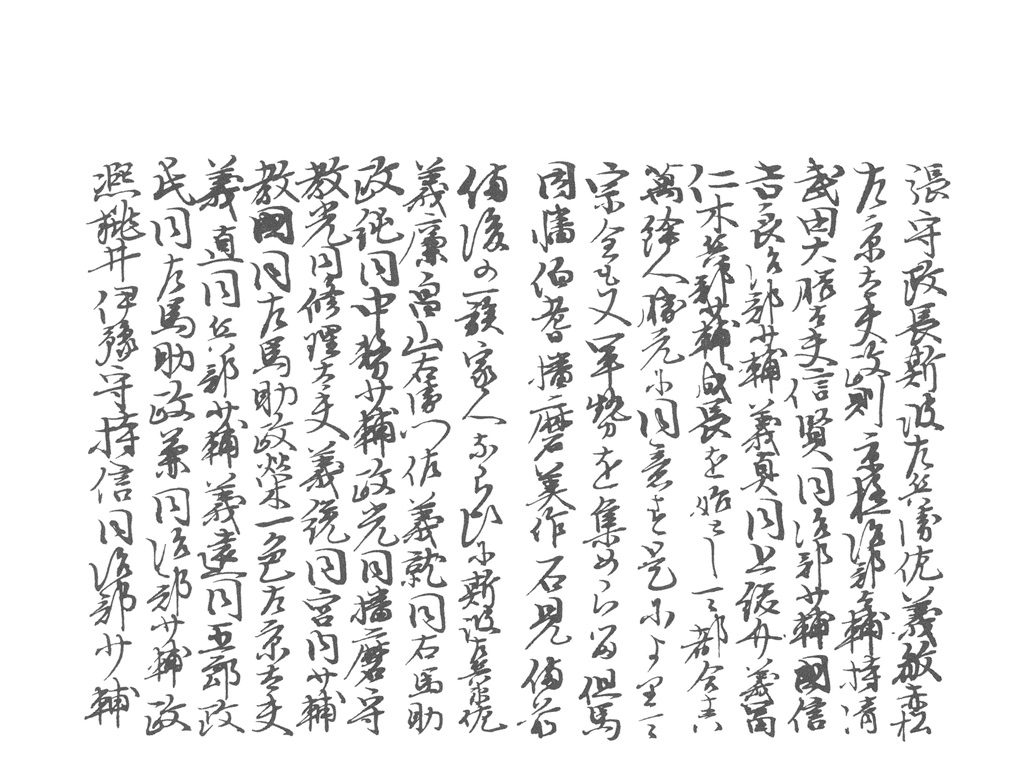 張守政長斯波左兵衛佐義敏赤松
左京大夫政則京極治部少輔持清
武田大膳大夫信賢同治部少輔國信
吉良治部少輔義真同上総介義富
仁木兵部少輔成長を始として都合十六
萬餘人勝元に同意す是によりて
宗全も又軍勢を集めらる但馬
因幡伯耆播磨美作石見備前
備後の一族家人ならびに斯波左兵衛佐
義廉畠山右衛門佐義就同右馬助
政純同中務少輔政光同播磨守
教光同修理大夫義統同宮内少輔
教國同左馬助政榮一色左京大夫
義直同兵部少輔義遠同五郎政
氏同左馬助政兼同治部少輔政
熙桃井伊豫守持信同治部少輔